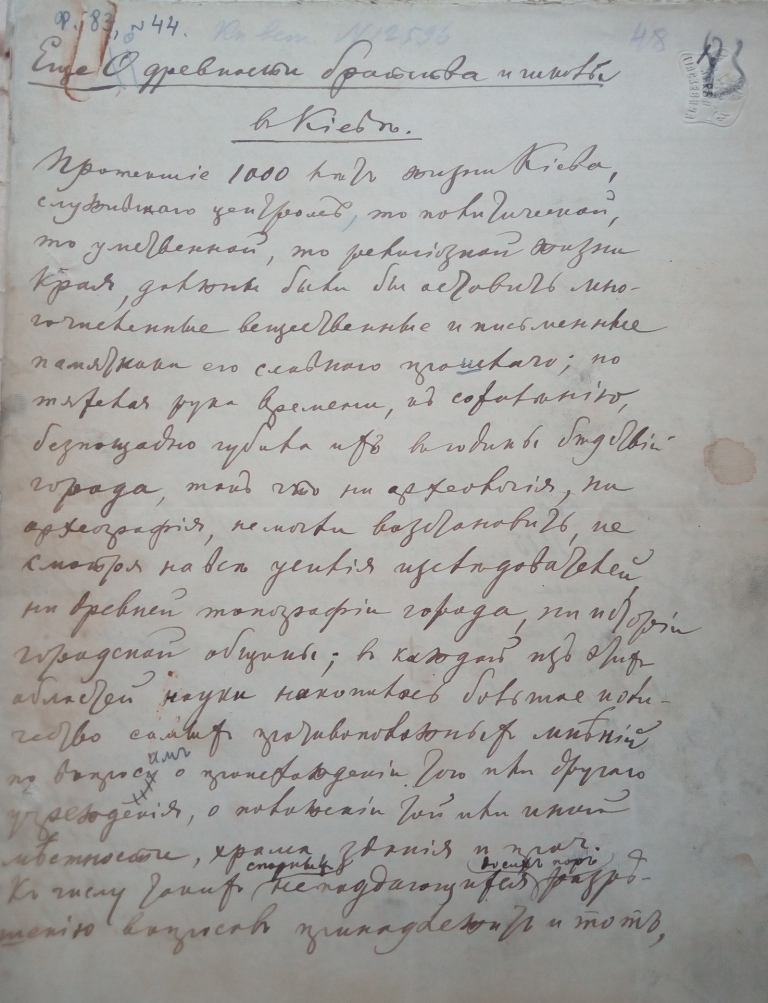 Ф. 183, № 44.
Кн вст. №12596
48
Еще О древности братства и школы
в Кіевѣ.
Протекшіе 1000 лѣтъ жизни Кіева,
служившаго центромъ, то политической,
то умственной, то религіозной жизни
края, должны были бы оставить мно-
гочисленные вещественные и письменные
памятники его славнаго прошлаго; но
тяжелая рука времени, къ сожалѣнію,
безпощадно губила ихъ въ годины бѣдствій
города, такъ что ни археологія, ни
археографія, не могли возстановить, не
смотря на всѣ усилія изслѣдователей,
ни древней топографіи города, ни исторіи
городской общины; въ каждой изъ этихъ
областей науки накопилось большое коли-
чество самыхъ противоположныхъ мнѣній
амъ
по вопросу о происхожденіи того или другаго
учрежденія, о положеніи той или иной
мѣстности, храма, зданія и проч.
спорныхъ до сихъ поръ
Къ числу такихъ неподдающихся разрѣ-
шенію вопросовъ принадлежитъ и тотъ,